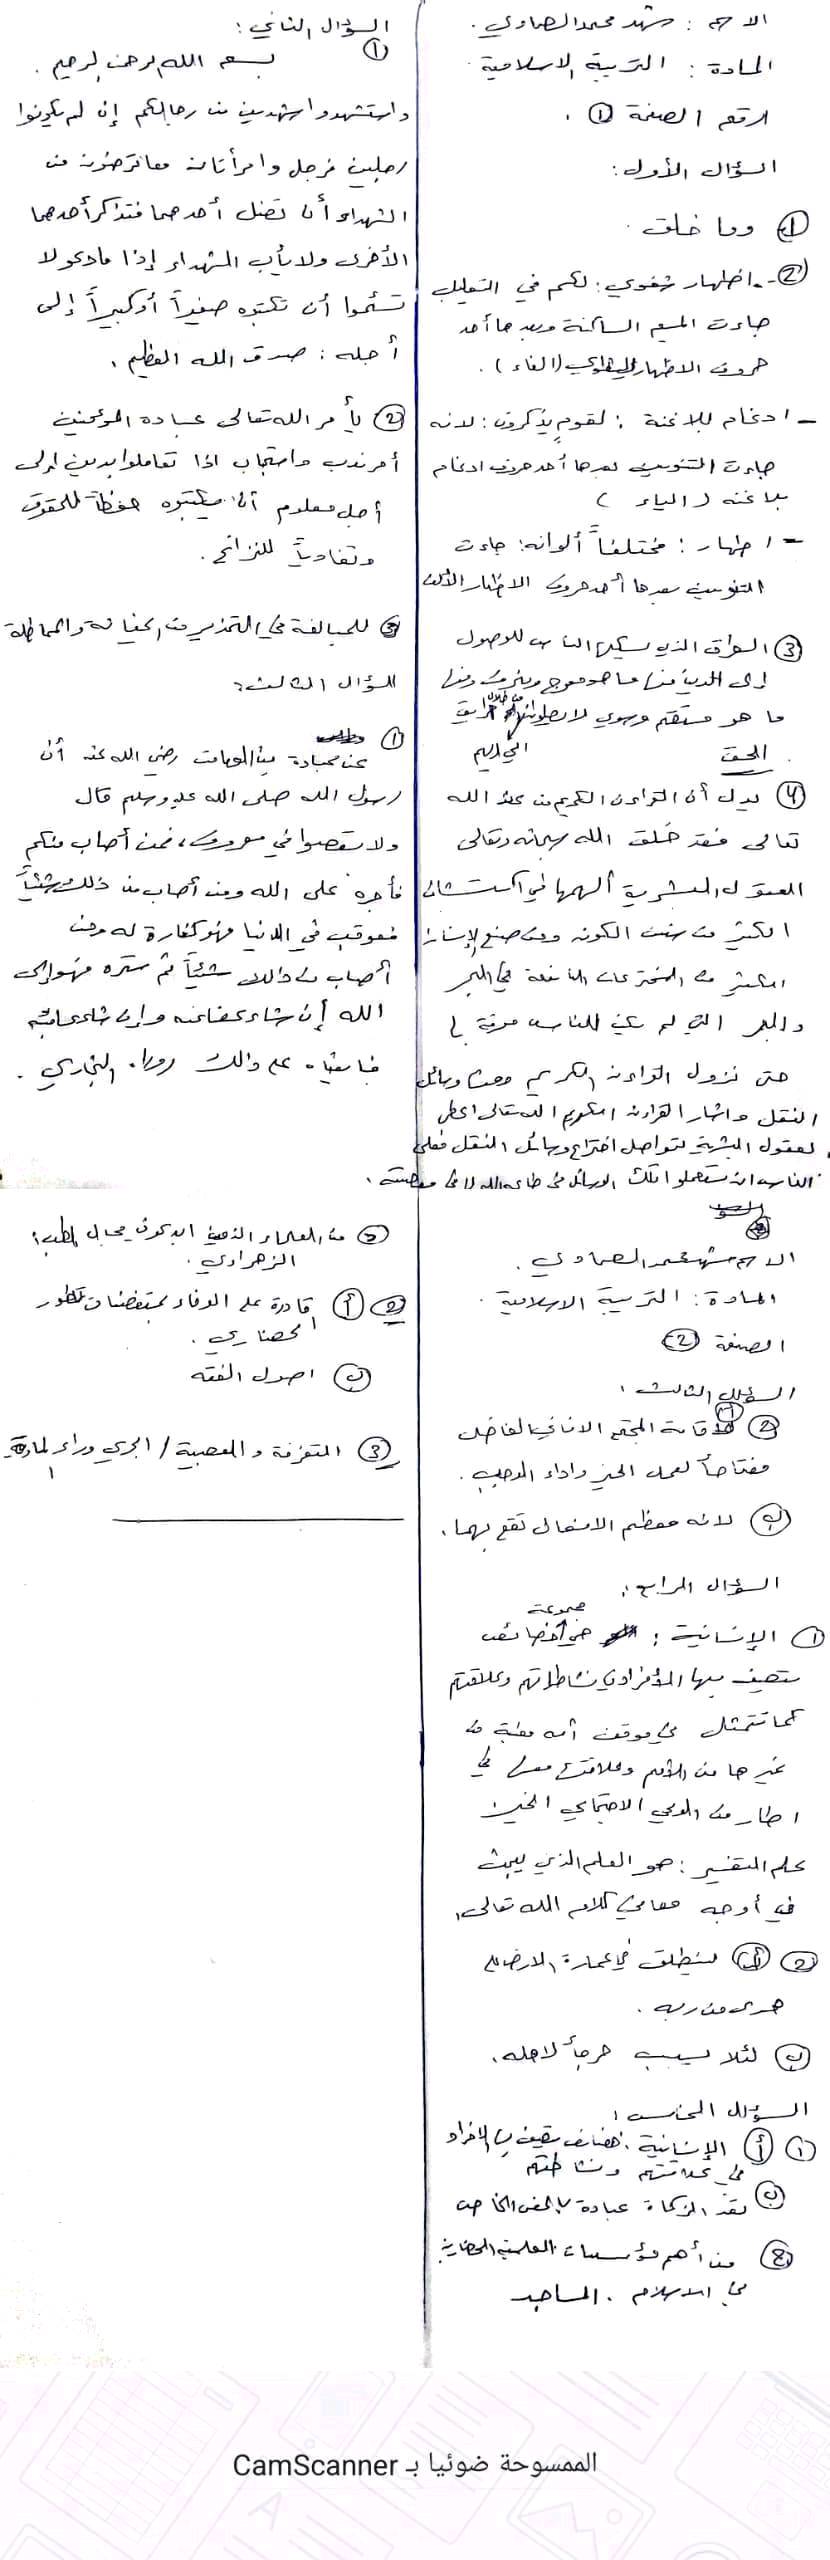 الاسم : شهد محمد الصماوي .
المادة : التربية الاسلامية .
رقم الصفحة ① .
السؤال الأول :
① وما خلق .
② - اظهار شفوي : لكم في التعليل
جاءت الميم الساكنة وبعدها أحد
حروف الاظهار الشفوي (الفاء) .
- ادغام بلا غنة : لقوم يذكرون : لانه
جاءت التنوين بعدها أحد حروف ادغام
بلا غنه ( الياء )
- اظهار : مختلفاً ألوانه : جاءت
التنوين بعدها أحد حروف الاظهار الألف
③ الطرق الذي يسلكها الناس للوصول
إلى الدين منها ما هو معوج ومنحرف ومنها
ما هو مستقيم وسوي لا يصلون إلا من خلال طرايق
الحق
④ يدل أن القراءن الكريم من عند الله
تعالى فقد خلق الله سبحانه وتعالى
العقول البشرية ألهمها في اكتشاف
الكثير من سنن الكون ومن صنع الإنسان
الكثير من المخترعات النافعة في البحر
والبر التي لم يكن للناس معرفة بها
حتى نزول القراءن الكريم ومنها وسائل
النقل واشار القراءن الكريم الله تعالى اعطى
لعقول البشرية لتواصل اختراع وسائل النقل فعلى
الناس ان يستعملوا تلك الوسائل في طاعة الله لا في معصيته .
السؤال الثاني :
① بسم الله الرحمن الرحيم .
واستشهدوا شهدين من رجالكم إن لم يكونوا
رجلين فرجل وامرأتان مما ترضون من
الشهداء أن تضل أحدهما فتذكر أحدهما
الأخرى ولا يأب الشهداء إذا ما دعو لا
تسئموا أن تكتبوه صغيراً أو كبيراً إلى
أجله : صدق الله العظيم .
② يأمر الله تعالى عباده المؤمنين
أمر ندب واستحباب اذا تعاملوا بدين إلى
أجل معلوم أن يكتبوه حفظاً للحقوق
وتفادياً للنزاع .
③ للمبالغة في التحذير من الخيانة والمماطلة
السؤال الثالث :
① عن عبادة بن الصامت رضي الله عنه أن
رسول الله صلى الله عليه وسلم قال
ولا تعصوا في معروف ، فمن أصاب منكم
فأجره على الله ومن أصاب من ذلك شيئاً
فعوقب في الدنيا فهو كفارة له ومن
أصاب من ذالك شيئاً ثم ستره فهو إلى
الله إن شاء عفا عنه وإن شاء عاقبه
فبايعناه على ذالك رواه البخاري .
الاسم شهد محمد الصماوي .
المادة : التربية الاسلامية .
الصفحة ②
السؤال الثالث :
② أ اقامة المجتمع الانساني الفاضل
مفتاحاً لعمل الخير واداء الواجب .
ب لانه معظم الافعال تقع بهما .
السؤال الرابع :
① الإنسانية : هي مجموعة خصائص
يتصف بها الأفراد في نشاطاتهم وعلاقتهم
كما تتمثل في موقف أمه معينة من
غيرها من الأمم وعلاقتها معها في
اطار من الوعي الاجتماعي الخير
علم التفسير : هو العلم الذي يبحث
في أوجه معاني كلام الله تعالى .
② أ لينطلق في عمارة الارض على
هدى من ربه .
ب لئلا يسبب حرجاً لاهله .
السؤال الخامس :
① أ الإنسانية : خصائص يتصف بها الافراد
في علاقتهم ونشاطتهم
ب تعد الزكاة عبادة بالمعنى الخاص
ج من أهم مؤسسات العلمية الحضارية
في الاسلام . المساجد
د من العلماء الذين ابدعوا في مجال الطب :
الزهراوي .
② أ قادرة على الوفاء بمقتضيات التطور
الحضاري .
ب اصول الفقه
③ التفرقة والعصبية / الجري وراء المادة
الممسوحة ضوئيا بـ CamScanner